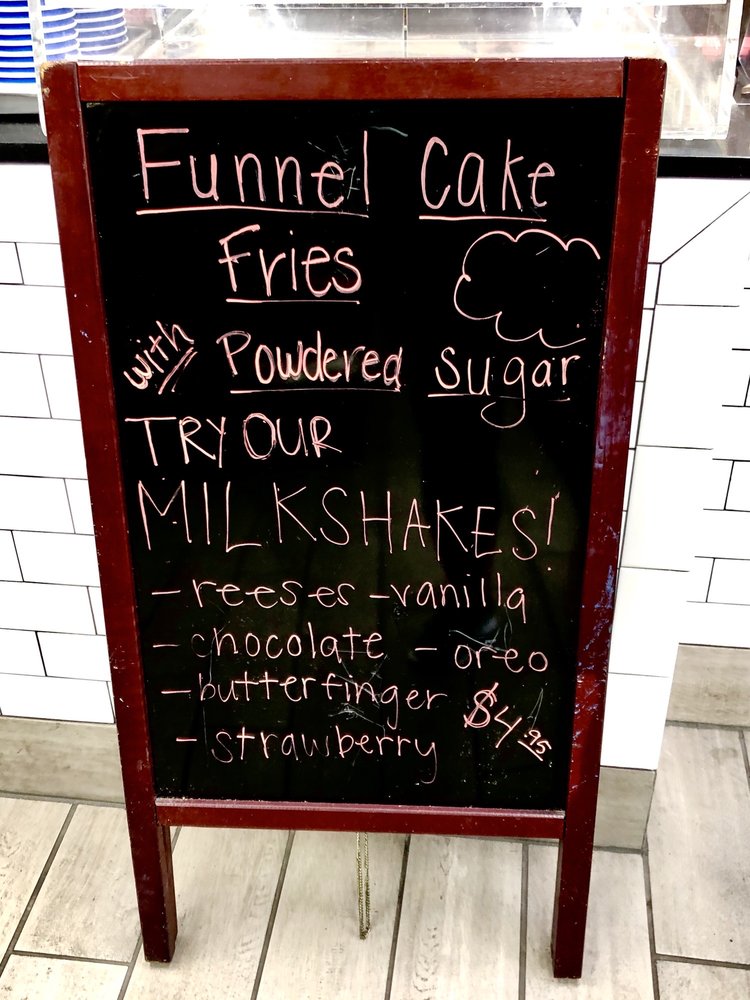 Funnel Cake
Fries
with Powdered sugar
TRY OUR
MILKSHAKES!
- reeses - vanilla
- chocolate - oreo
- butterfinger
- strawberry $4.95